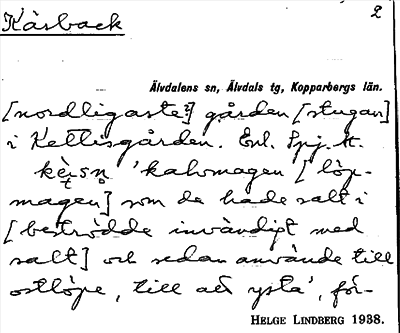 Kåsback
2
Älvdalens sn, Älvdals tg, Kopparbergs län.
[nordligaste?] gården [stugan]
i Kettisgården. Enl. Spj. H.
'kalvmagen [löp-
magen] som de hade salt i
[beströdde invändigt med
salt] och sedan använde till
ostlöpe, till att ysta', för-
HELGE LINDBERG 1938.